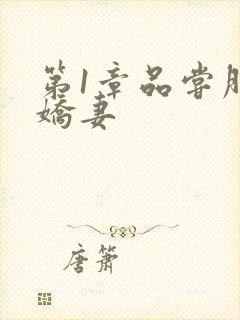 第1章品尝
娇妻
唐箫